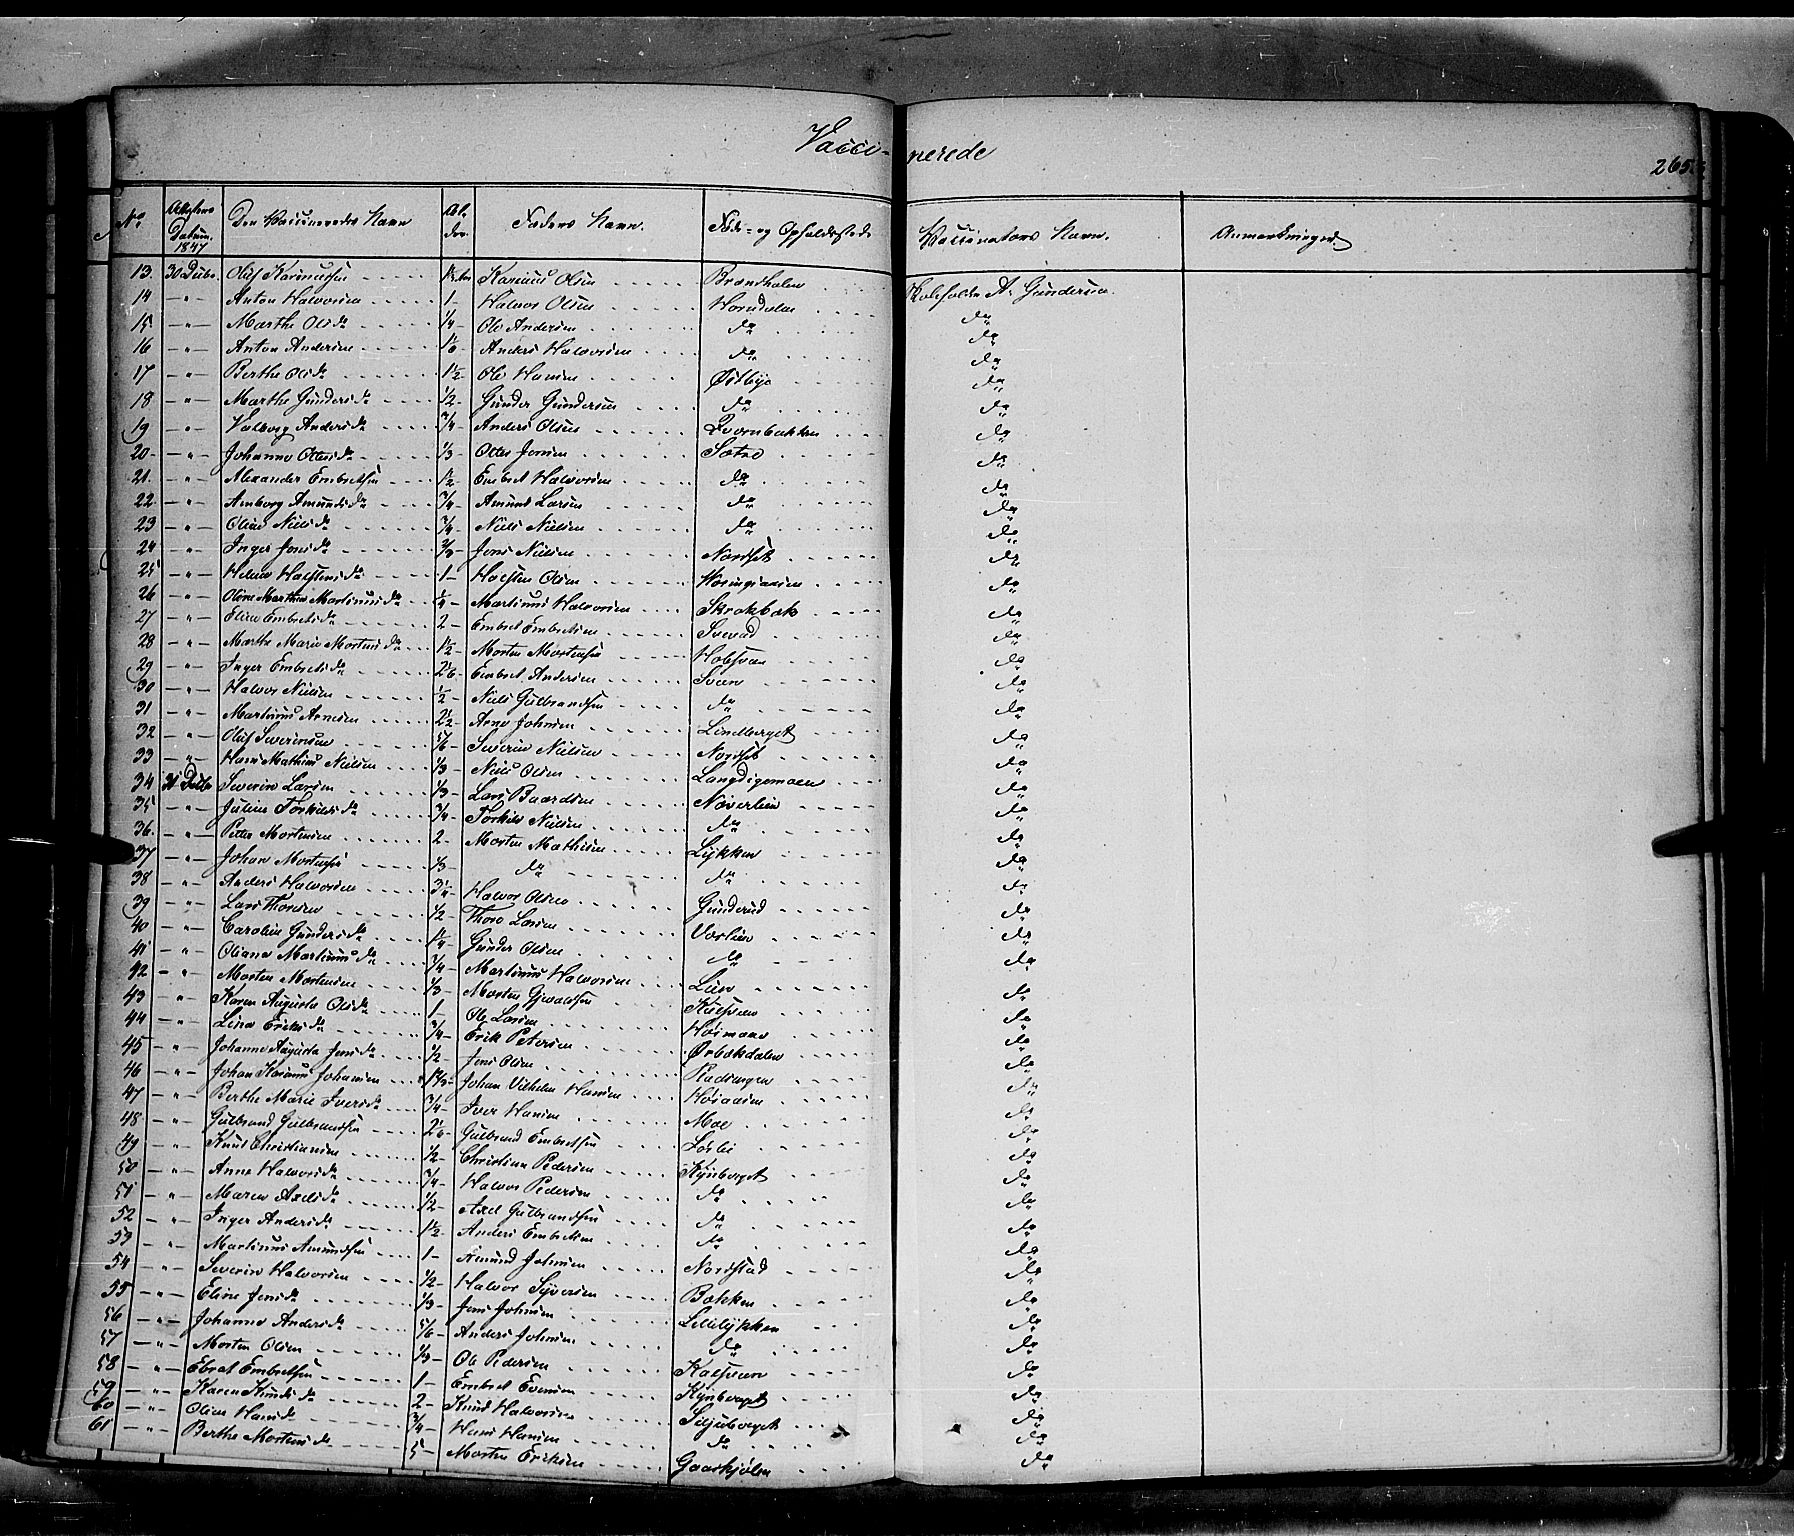 Vacci- nerede
265
No. Attestens Datum. 1847 Den Vaccineredes Navn Al- der Faders Navn. Føde- og Opholdssted Vaccinators Navn. Anmærkninger
13. 30 Octbr. Oluf Karinussen Karinus Olsen Brændholen Skoleholder A. Gundersen.
14 -"- Anton Halvorsen 1- Halvor Olsen Horndalen do
15 -"- Marthe Olsdr 1/4- Ole Andersen do do
16 -"- Anton Andersen Anders Halvorsen do do
17 -"- Berthe Olsdr 1 1/2- Ole Hansen Østbye do
18 -"- Marthe Gundersdr 1/2- Gunder Gundersen do do
19 -"- Valborg Andersdr 3/4- Anders Olsen Qvernbakken do
20- -"- Johanne Ottersdr 1/3- Otter Jensen Sætre do
21. -"- Alexander Embretsen 1 1/2- Embret Halvorsen do do
22 -"- Amborg Amundsdr 3/4- Amund Larsen do do
23 -"- Oline Nielsdr 3/4- Niels Nielsen do do
24 -"- Inger Jensdr 2/3- Jens Nielsen Nordset do
25 -"- Helene Halstensdr 1- Halsten Olsen do
26 -"- Oline Marthea Martinusdr 1/4- Martinus Halvorsen Skrækbæk do
27 -"- Eline Embretsdr 2- Embret Embretsen Sverud do
28 -"- Marthe Marie Mortensdr 1 1/2- Morten Mortensen Holsveen do
29 -"- Inger Embretsdr 2 1/6- Embret Andersen Sveen do
30 -"- Halvor Nielsen 1/2- Niels Gulbrandsen do do
31 -"- Martinus Arnesen 2 1/2- Arne Johnsen Lindberget do
32 -"- Oluf Severinsen 5/6- Severin Nielsen Nordset do
33 -"- Hans Mathias Nielsen 1/3- Niels Olsen Langdigemoen do
34 31 Octbr Severin Larsen 1/3- Lars Baardsen Noverlien do
35 -"- Juline Torkildsdr 3/4- Torkild Nielsen do do
36 -"- Peter Mortensen 2- Morten Mathisen Lykken do
37 -"- Johan Mortensen 1/3- do do do
38 -"- Anders Halvorsen 3 1/4- Halvor Olsen Gunderud do
39 -"- Lars Thoresen 1/2- Thore Larsen Varlien do
40 -"- Caroline Gundersdr 1 1/4- Gunder Olsen do do
41 -"- Oliana Martinusdr 3/4- Martinus Halvorsen Lien do
42 -"- Morten Mortensen 1/3- Morten Gjvaldsen Kulsveen do
43 -"- Karen Augusta Olsdr 1- Ole Larsen Høimoen do
44 -"- Lina Eriksdr 3/4- Erik Petersen Ørbækdalen do
45 -"- Johanne Augusta Jensdr 1/2- Jens Olsen Rustungen do
46 -"- Johan Karinus Johansen Johan Vilhelm Hansen Høiaasen do
47 -"- Berthe Marie Iversdr 3/4- Iver Hansen Moe do
48 -"- Gulbrand Gulbrandsen 2 1/6- Gulbrand Embretsen Løslie do
49 -"- Knud Christiansen 1/2- Christian Pedersen Kynberget do
50 -"- Anne Halvorsdr 3/4- Halvor Pedersen do do
51 -"- Maren Axelsdr 1/2- Axel Gulbrandsen do do
52 -"- Inger Andersdr 1 1/2- Anders Embretsen do do
53 -"- Martinus Amundsen 1- Amund Johnsen Nordstad do
54 -"- Severin Halvorsen 1/2- Halvor Syversen Bækken do
55 -"- Eline Jensdr 1/3- Jens Johnsen Lillelykken do
56 -"- Johanne Andersdr 5/6- Anders Johnsen do do
57 -"- Morten Olsen 1/3- Ole Pedersen Kalsveen do
58 -"- Ebret Embretsen 1- Embret Evensen Kynberget do
59 -"- Karen Knudsdr 2- Knud Halvorsen Siljuberget do
60 -"- Oline Hansdr 3/4- Hans Hansen do do
61 -"- Berthe Mortensdr 5- Morten Eriksen Gaaskjølen do